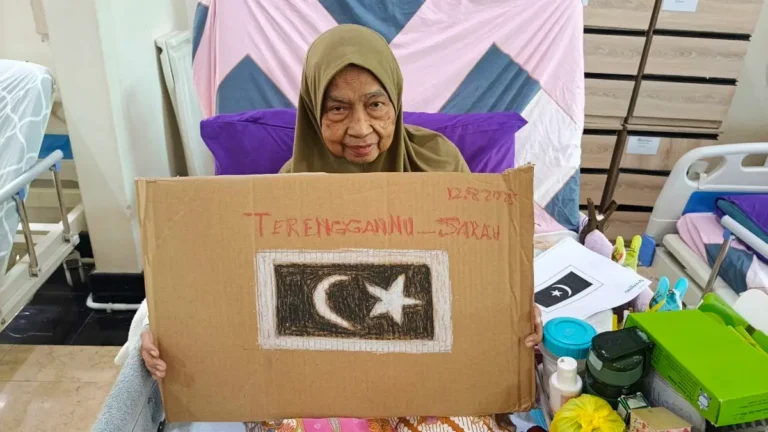 12.8.2025
TERENGGANNU__SARAH